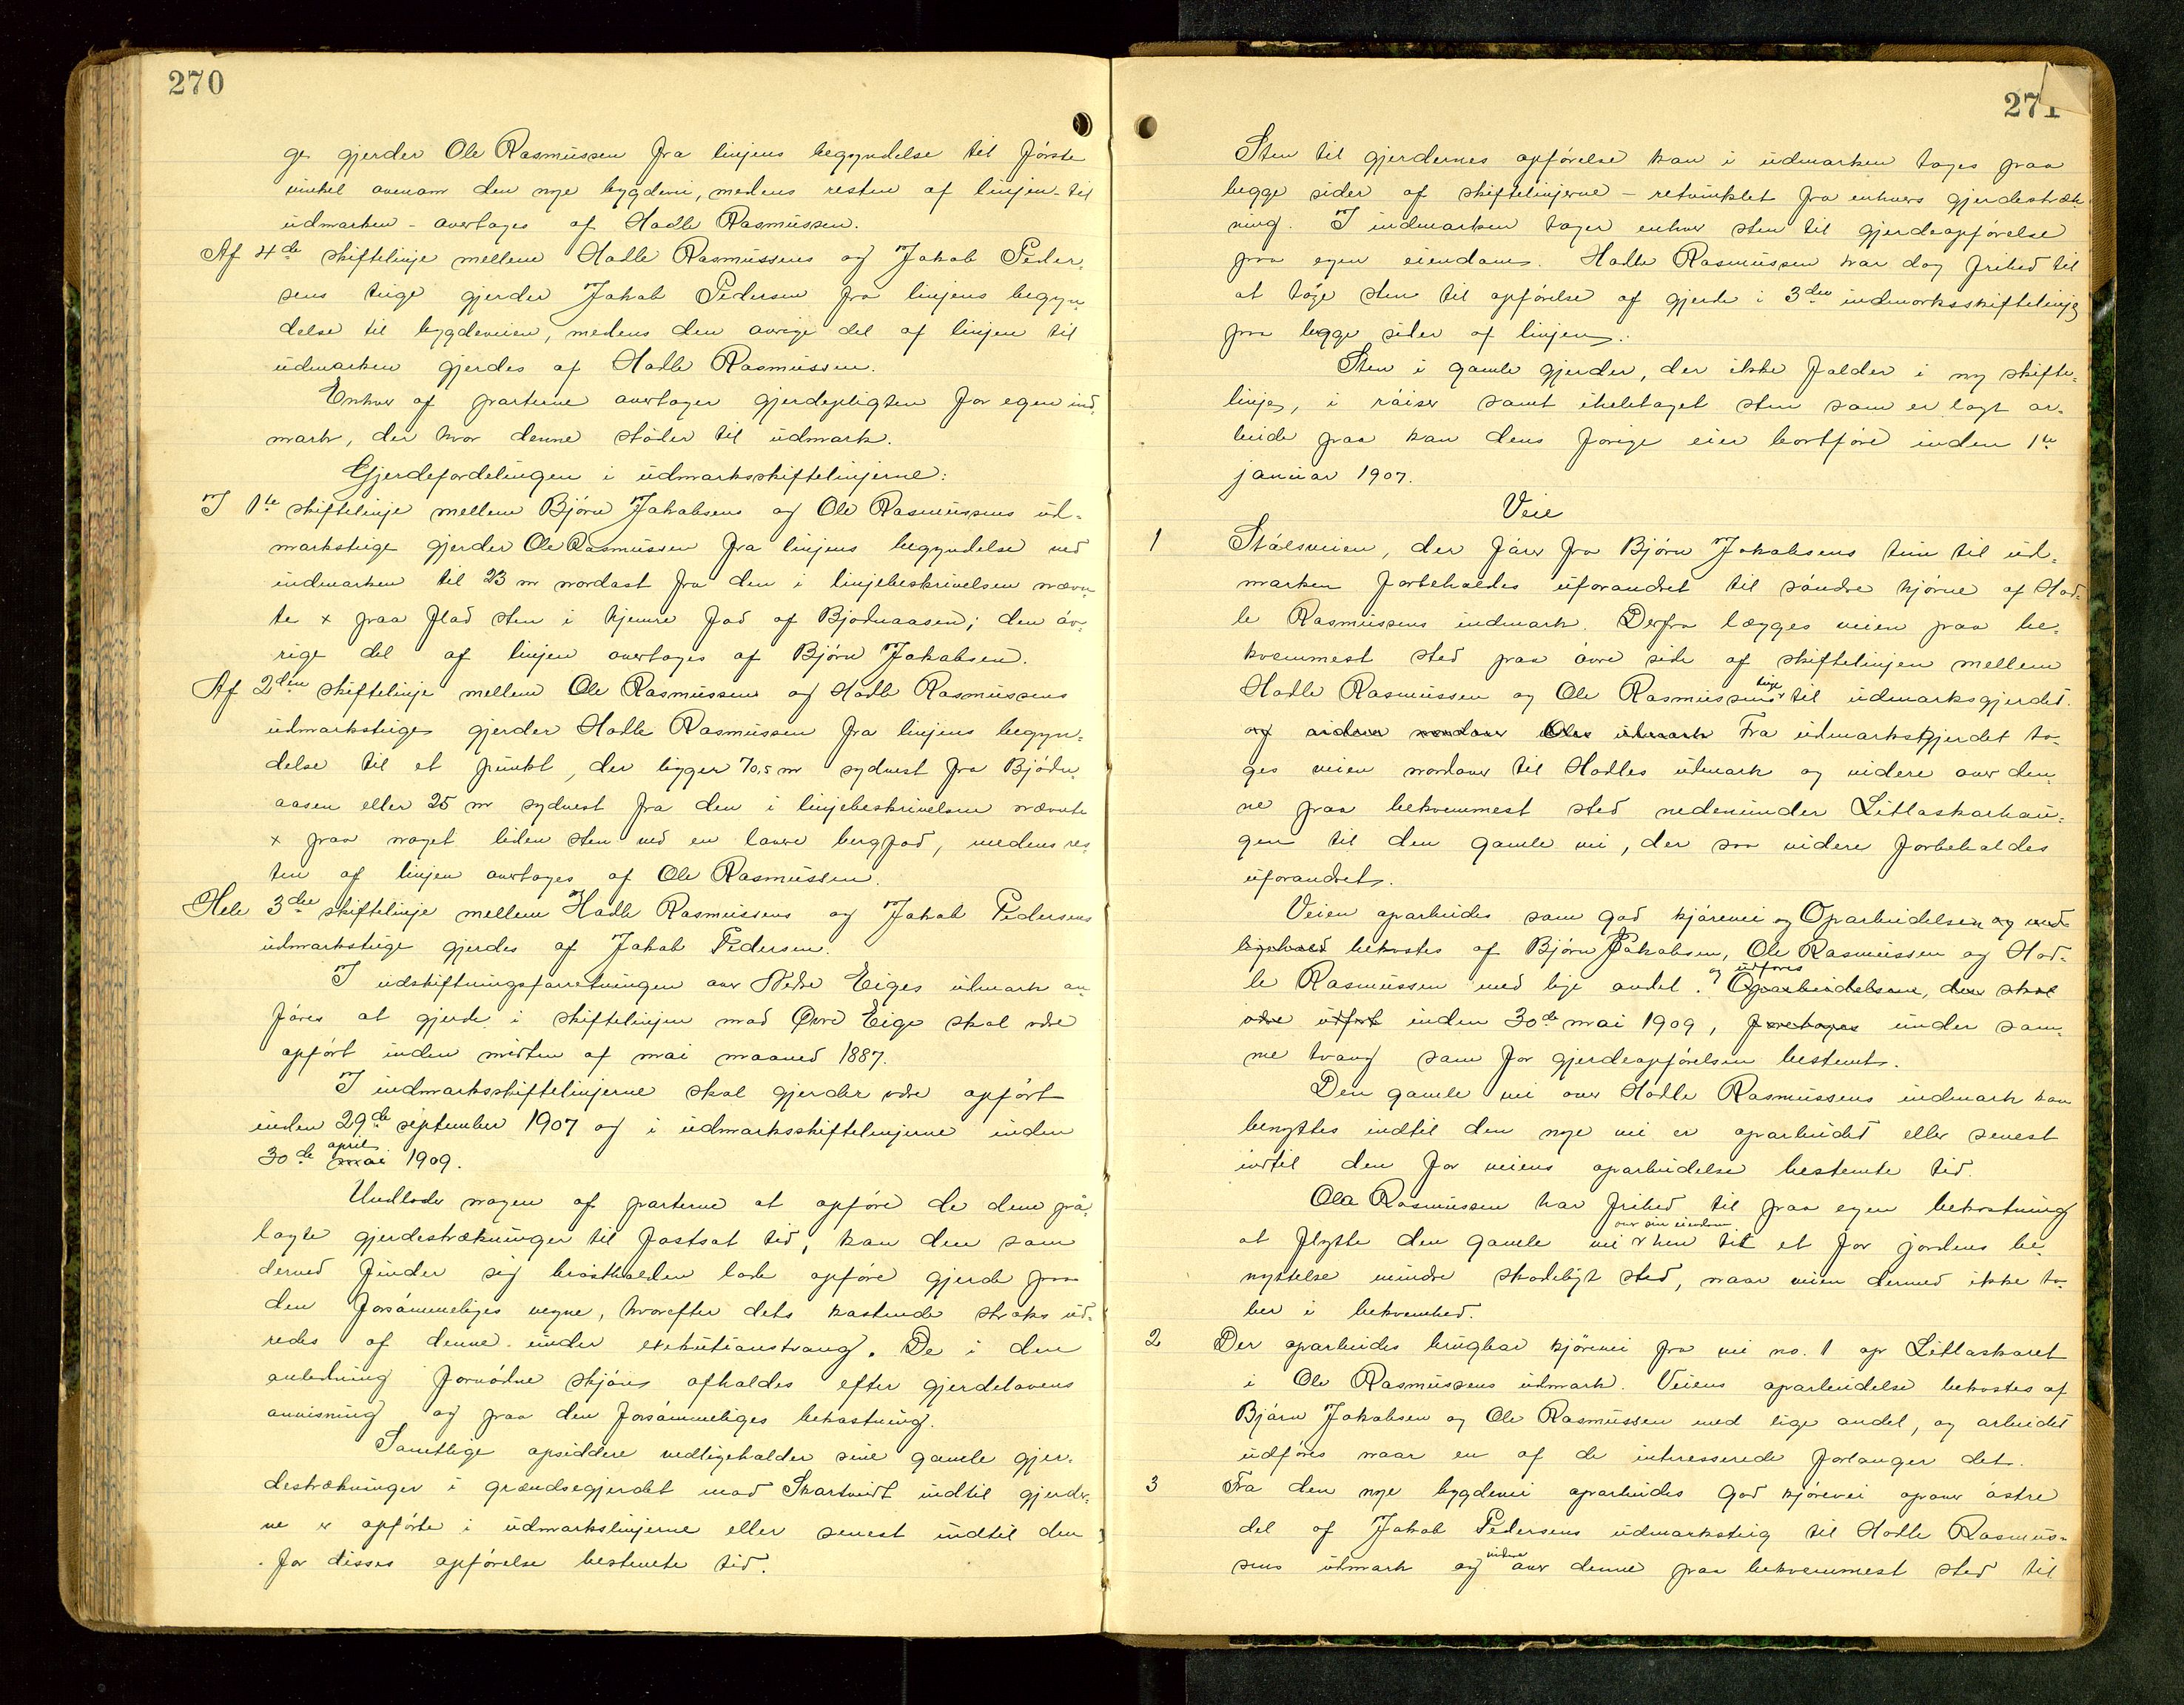 270
ge gjerder Ole Rasmussen fra linjens begyndelse til første
vinkel ovenom den nye bygdevei, medens resten af linjen - til
udmarken - overtages af Hadle Rasmussen.
Af 4de skiftelinje mellem Hadle Rasmussens og Jakob Peder-
sens teige gjerder Jakob Pedersen fra linjens begyn-
delse til bygdeveien, medens den øvrige del af linjen til
udmarken gjerdes af Hadle Rasmussen.
Enhver af parterne overtager gjerdepligten for egen ind-
mark, der hvor denne støder til udmark.
Gjerdefordelingen i udmarksskiftelinjerne:
I 1ste skiftelinje mellem Bjørn Jakobsens og Ole Rasmussens ud-
marksteige gjerder Ole Rasmussen fra linjens begyndelse ved
indmarken til 23 m nordost fra den i linjebeskrivelsen nævn-
te x paa flad sten i hjemre fod af Bjødnaasen; den øv-
rige del af linjen overtages af Bjørn Jakobsen.
Af 2den skiftelinje mellem Ole Rasmussens og Hadle Rasmussens
udmarksteige gjerder Hadle Rasmussen fra linjens begyn-
delse til et punkt, der ligger 70,5 m sydvest fra Bjødn-
aasen eller 25 m sydvest fra den i linjebeskrivelsen nævnte
x paa noget liden sten ved en lavere bergfod, medens res-
ten af linjen overtages af Ole Rasmussen.
Hele 3die skiftelinje mellem Hadle Rasmussens og Jakob Pedersens
udmarksteige gjerdes af Jakob Pedersen.
I udskiftningsforretningen over Nedre Eiges udmark an-
føres at gjerde i skiftelinjen mod Øvre Eige skal være
opført inden midten af mai maaned 1887.
I indmarksskiftelinjerne skal gjerder være opført
inden 29de september 1907 og i udmarksskiftelinjerne inden
30de mai april 1909.
Undlader nogen af parterne at opføre de dem på-
lagte gjerdestrækninger til fastsat tid, kan den som
derved finder sig brøstholden lade opføre gjerde paa
den forsømmeliges vegne, hvorefter dets kostende straks ud-
redes af denne under exekutionstvang. De i den
anledning fornødne skjøns afholdes efter gjerdelovens
anvisning og paa den forsømmeliges bekostning.
Samtlige opsiddere vedligeholder sine gamle gjer-
destrækninger i grændsegjerdet mod Skartveit indtil gjerder-
ne er opførte i udmarkslinjerne eller senest indtil den
for disses opførelse bestemte tid.
271
Sten til gjerdernes opførelse kan i udmarken tages paa
begge sider af skiftelinjerne - retvinklet fra enhvers gjerdestræk-
ning. I indmarken tager enhver sten til gjerdeopførelse
paa egen eiendom. Hadle Rasmussen har dog frihed til
at tage sten til opførelse af gjerde i 3die indmarksskiftelinje
paa begge sider af linjen.
Sten i gamle gjerder, der ikke falder i ny skifte-
linje, i røiser samt iheletaget sten som er lagt ar-
beide paa kan dens forige eier bortføre inden 1te
januar 1907.
Veie
1 Stølsveien, der fører fra Bjørn Jakobsens tun til ud-
marken forbeholdes uforandret til søndre hjørne af Had-
le Rasmussens indmark. Derfra lægges veien paa be-
kvemmest sted paa øvre side af skiftelinjen mellem
Hadle Rasmussen og Ole Rasmussens teige til udmarksgjerdet.
og videre nordover Oles udmark Fra udmarksgjerdet ta-
ges veien nordover til Hadles udmark og videre over den-
ne paa bekvemmest sted nedenunder Litlaskarhau-
gen til den gamle vei, der saa videre forbeholdes
uforandret.
Veien oparbeides som god kjørevei og Oparbeidelsen og ved-
ligehold bekostes af Bjørn Jakobsen, Ole Rasmussen og Had-
le Rasmussen med lige andel. og udføres Oparbeidelsen, der skal
være udført inden 30de mai 1909, foretages under sam-
me tvang som for gjerdeopførelsen bestemt.
Den gamle vei over Hadle Rasmussens indmark kan
benyttes indtil den nye vei er oparbeidet eller senest
indtil den for veiens oparbeidelse bestemte tid.
Ole Rasmussen har frihed til paa egen bekostning
at flytte den gamle vei over sin eiendom hen til et for jordens be-
nyttelse mindre skadeligt sted, naar veien dermed ikke ta-
ber i bekvemhed.
2 Der oparbeides brugbar kjørevei fra vei no. 1 op Litlaskaret
i Ole Rasmussens udmark. Veiens oparbeidelse bekostes af
Bjørn Jakobsen og Ole Rasmussen med lige andel, og arbeidet
udføres naar en af de interesserede forlanger det.
3 Fra den nye bygdevei oparbeides god kjørevei opover østre
del af Jakob Pedersens udmarksteig til Hadle Rasmus-
sens udmark og videre over denne paa bekvemmest sted til